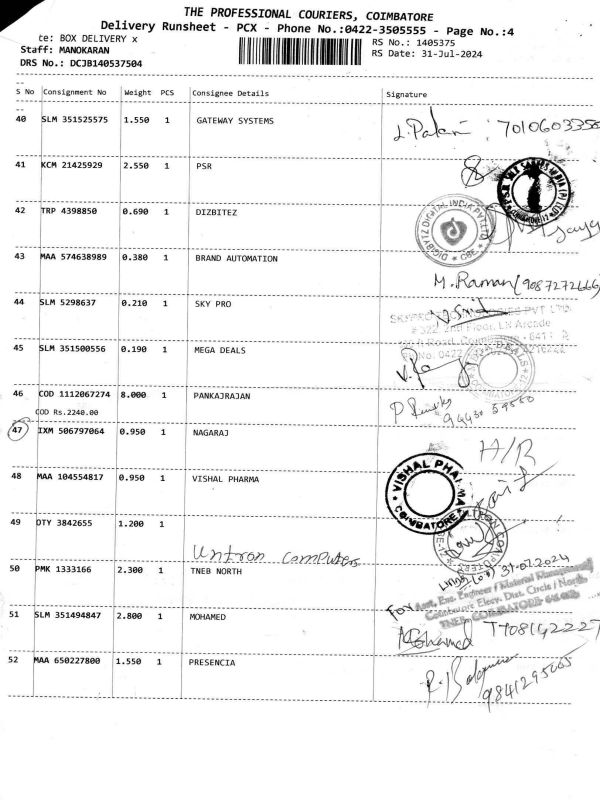 THE PROFESSIONAL COURIERS, COIMBATORE
Delivery Runsheet - PCX - Phone No.:0422-3505555 - Page No.:4
te: BOX DELIVERY x
RS No.: 1405375
Staff: MANOKARAN
RS Date: 31-Jul-2024
DRS No.: DCJB140537504
S No Consignment No Weight PCS Consignee Details Signature
40 SLM 351525575 1.550 1 GATEWAY SYSTEMS
J. Palani : 7010603358
41 KCM 21425929 2.550 1 PSR
42 TRP 4398850 0.690 1 DIZBITEZ
DIGIBYTZ DIGITAL INDIA PVT LTD CBE
43 MAA 574638989 0.380 1 BRAND AUTOMATION
M. Raman (9087272666)
44 SLM 5298637 0.210 1 SKY PRO
# 322, 2nd Floor, LN Arcade
45 SLM 351500556 0.190 1 MEGA DEALS
DEALS
46 COD 1112067274 8.000 1 PANKAJRAJAN
COD Rs.2240.00
47 IXM 506797064 0.950 1 NAGARAJ
H/R
48 MAA 104554817 0.950 1 VISHAL PHARMA
VISHAL PHARMA COIMBATORE
49 OTY 3842655 1.200 1
Untron Computers
31.07.2024
50 PMK 1333166 2.300 1 TNEB NORTH
For Asst. Exe. Engineer / Material Management
Coimbatore Elecy. Dist. Circle / North
TNEB COIMBATORE
51 SLM 351494847 2.800 1 MOHAMED
Mohamed
52 MAA 650227800 1.550 1 PRESENCIA